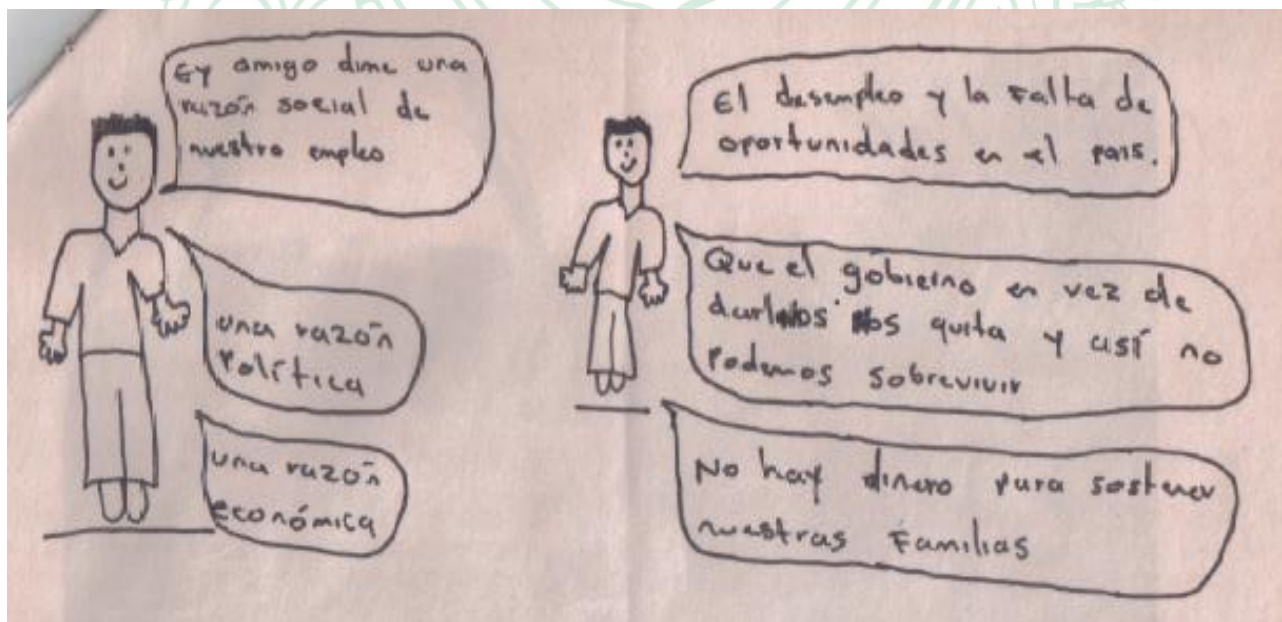 Ey amigo dime una
razón social de
nuestro empleo
una razón
Política
una razón
económica
El desempleo y la Falta de
oportunidades en el pais.
Que el gobierno en vez de
darnos nos quita y así no
Podemos sobrevivir
No hay dinero para sostener
nuestras Familias